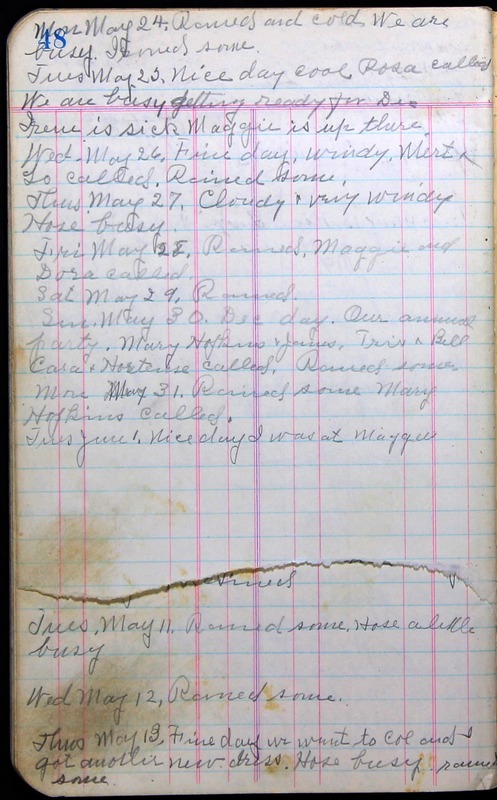 48
Mon May 24. Rained and cold We are
busy. Ironed some.
Tues May 25. Nice day cool Rosa called
We are busy getting ready for Dec
Irene is sick Maggie is up there.
Wed. May 26, Fine day, windy, Mert &
Lo called. Rained some.
Thus May 27. Cloudy & very windy
Hose busy.
Fri May 28, Rained, Maggie and
Dora called
Sat May 29, Rained.
Sun. May 30. Dec day. Our annual
party. Mary Hofkins & James, Trix & Bill
Cara & Hortense called. Rained some
Mon May 31. Rained some Mary
Hofkins called.
Tues June 1. Nice day I was at Maggie
Tues, May 11. Rained some, Hose a little
busy
Wed May 12, Rained some.
Thus May 13, Fine day we went to Col and I
got another new dress. Hose busy. rained
some.